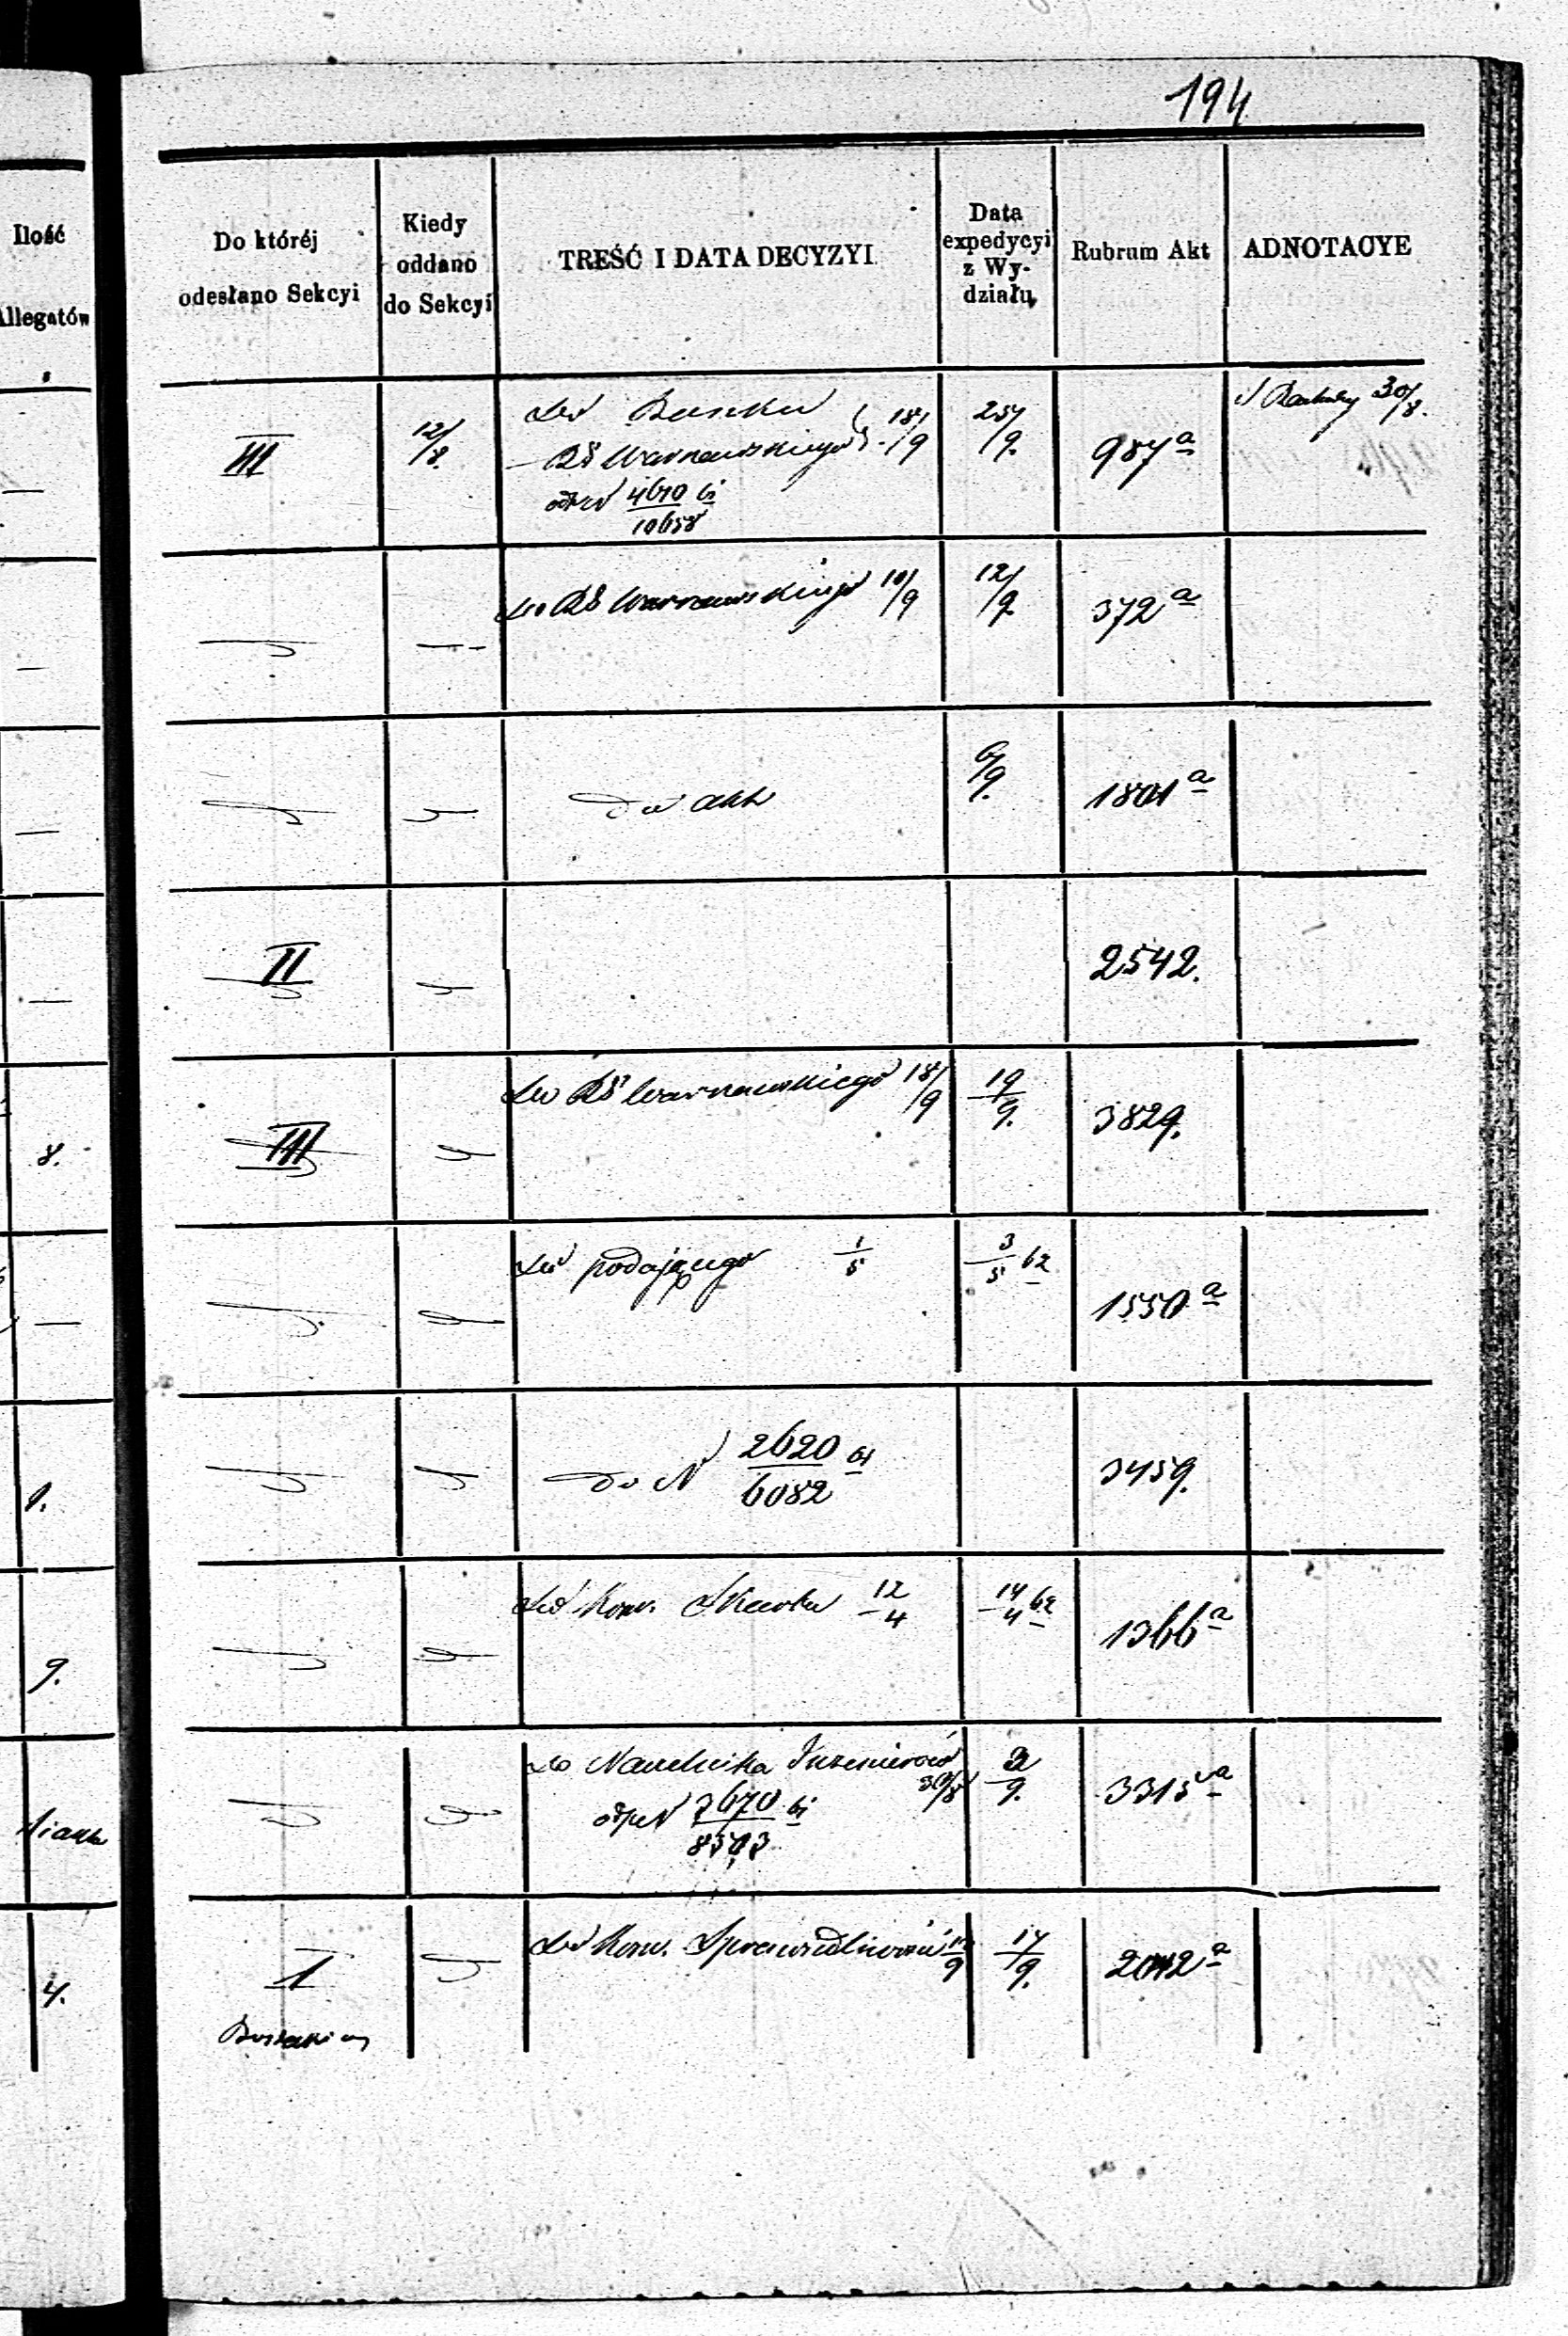 194
Ilość
Allegatów
Do któréj
odesłano Sekcyi
Kiedy
oddano
do Sekcyi
TREŚĆ I DATA DECYZYI
Data
expedycyi
z Wy-
działu
Rubrum Akt
ADNOTACYE
III
12/8.
Do Banku
RG Warszawskiego 18/9
odp N 4610/10658 61
25/9.
987 a
30/8.
Do RG Warszawskiego 10/9
12/9
372 a
Do akt
6/9.
1801 a
II
2542.
8.
III
Do RG Warszawskiego 18/9
19/9.
3829.
Do podającego 1/5
3/5 62
1550 a
1.
Do N 2620/6082 61
3459.
9.
Do Kom. Skarbu 12/4
14/4 62
1366 a
Do Naczelnika Inżenierów
30/8
odp N 7670/8503 61
2/9.
3315 a
4.
I
Do Kom. Sprawiedliwości
17/9.
2042 a